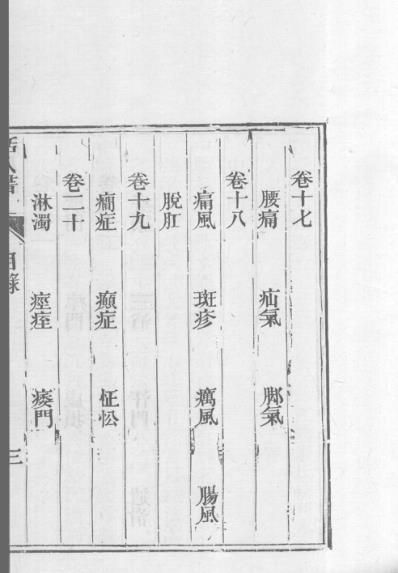 卷十七
腰痛 疝氣 脚氣
卷十八
痛風 斑疹 癘風 腸風
脫肛
卷十九
癎症 癲症 怔忪
卷二十
淋濁 痙痓 痿門
目錄 三